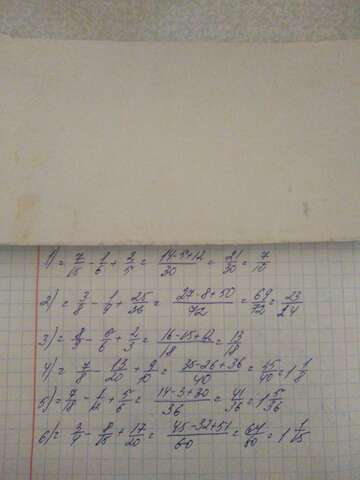 1) = 7/15 - 1/6 + 2/5 = (14-5+12)/30 = 21/30 = 7/10
2) = 3/8 - 1/9 + 25/36 = (27-8+50)/72 = 69/72 = 23/24
3) = 8/9 - 5/6 + 2/3 = (16-15+12)/18 = 13/18
4) = 7/8 - 13/20 + 9/10 = (35-26+36)/40 = 45/40 = 1 1/8
5) = 7/18 - 1/12 + 5/6 = (14-3+30)/36 = 41/36 = 1 5/36
6) = 3/4 - 8/15 + 17/20 = (45-32+51)/60 = 64/60 = 1 1/15